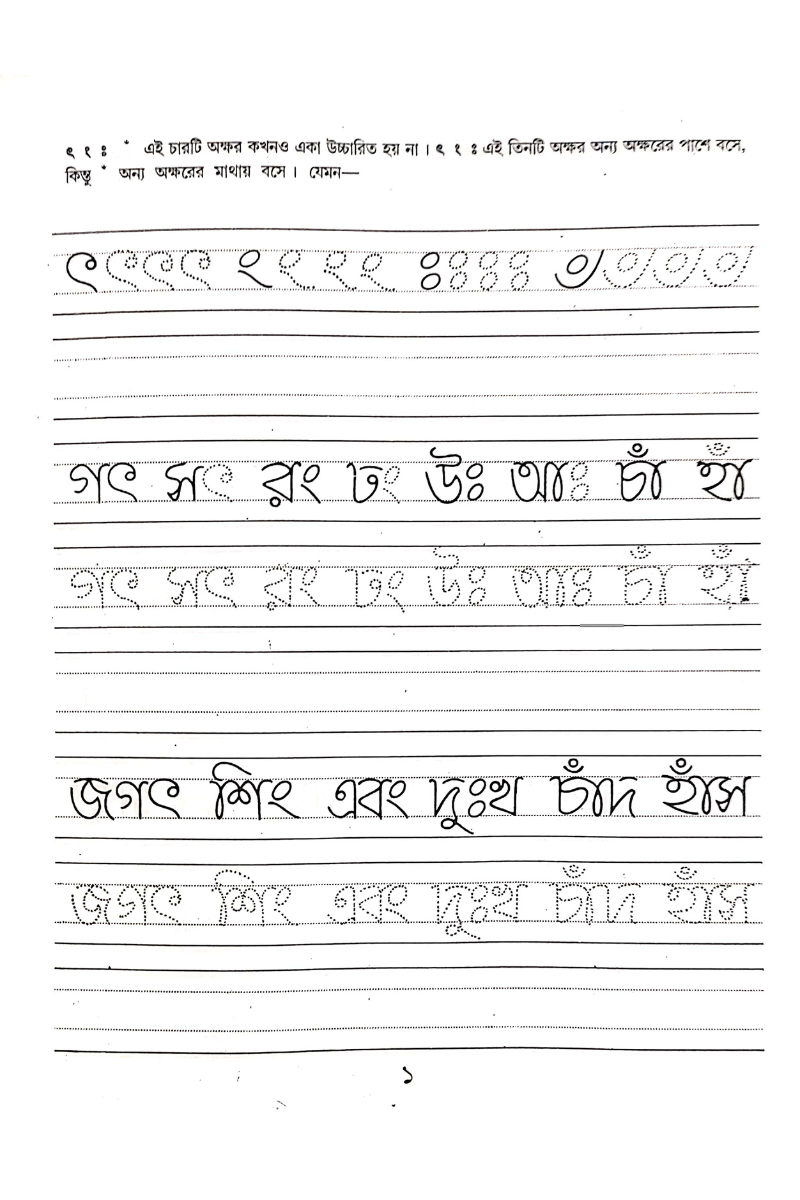 ৎ ং ঃ ঁ এই চারটি অক্ষর কখনও একা উচ্চারিত হয় না। ৎ ং ঃ এই তিনটি অক্ষর অন্য অক্ষরের পাশে বসে,
কিন্তু ঁ অন্য অক্ষরের মাথায় বসে। যেমন—
ৎৎৎৎ ংংংং ঃঃঃঃ ঁঁঁঁ
গৎ সৎ রং ঢং উঃ আঃ চাঁ হাঁ
গৎ সৎ রং ঢং উঃ আঃ চাঁ হাঁ
জগৎ শিং এবং দুঃখ চাঁদ হাঁস
জগৎ শিং এবং দুঃখ চাঁদ হাঁস
১